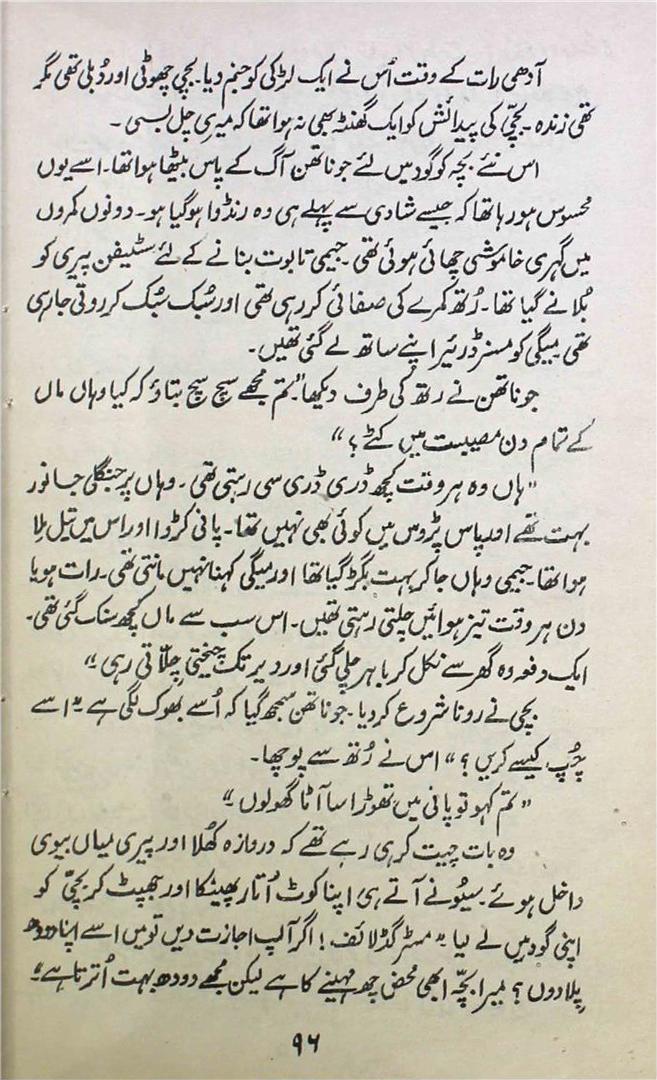 آدھی رات کے وقت اُس نے ایک لڑکی کو جنم دیا۔ بچی چھوٹی اور دُبلی تھی مگر
تھی زندہ۔ بچّی کی پیدائش کو ایک گھنٹہ بھی نہ ہوا تھا کہ میری چل بسی۔
اس نئے بچہ کو گود میں لئے جوناتھن آگ کے پاس بیٹھا ہوا تھا۔ اسے یوں
محسوس ہو رہا تھا کہ جیسے شادی سے پہلے ہی وہ رنڈوا ہو گیا ہو۔ دونوں کمروں
میں گہری خاموشی چھائی ہوئی تھی۔ جیمی تابوت بنانے کے لئے سٹیفن پیری کو
بُلانے گیا تھا۔ رُتھ کمرے کی صفائی کر رہی تھی اور سُبک سُبک کر روتی جا رہی
تھی میگی کو مسنر ڈرئیر اپنے ساتھ لے گئی تھیں۔
جوناتھن نے رتھ کی طرف دیکھا "تم مجھے سچ سچ بتاؤ کہ کیا وہاں ماں
کے تمام دن مصیبت میں کٹے؟"
"ہاں وہ ہر وقت کچھ ڈری ڈری سی رہتی تھی۔ وہاں پر جنگلی جانور
بہت تھے اور پاس پڑوس میں کوئی بھی نہیں تھا۔ پانی کڑوا اور اس میں تیل ملا
ہوا تھا۔ جیمی وہاں جا کر بہت بگڑ گیا تھا اور میگی کہنا نہیں مانتی تھی۔ رات ہو یا
دن ہر وقت تیز ہوائیں چلتی رہتی تھیں۔ اس سب سے ماں کچھ سنک گئی تھی۔
ایک دفعہ وہ گھر سے نکل کر باہر چلی گئی اور دیر تک چیختی چلّاتی رہی۔"
بچی نے رونا شروع کر دیا۔ جوناتھن سمجھ گیا کہ اُسے بھوک لگی ہے۔ "اسے
چُپ کیسے کریں؟" اس نے رُتھ سے پوچھا۔
"تم کہو تو پانی میں تھوڑا سا آٹا گھولوں۔"
وہ بات چیت کر ہی رہے تھے کہ دروازہ کھُلا اور پیری میاں بیوی
داخل ہوئے۔ سیُو نے آتے ہی اپنا کوٹ اُتار پھینکا اور جھپٹ کر بچّی کو
اپنی گود میں لے لیا۔ "مسٹر گڈلائف! اگر آپ اجازت دیں تو میں اسے اپنا دودھ
پلا دوں؟ میرا بچّہ ابھی محض چھ مہینے کا ہے لیکن مجھے دودھ بہت اُترتا ہے"
۹۶